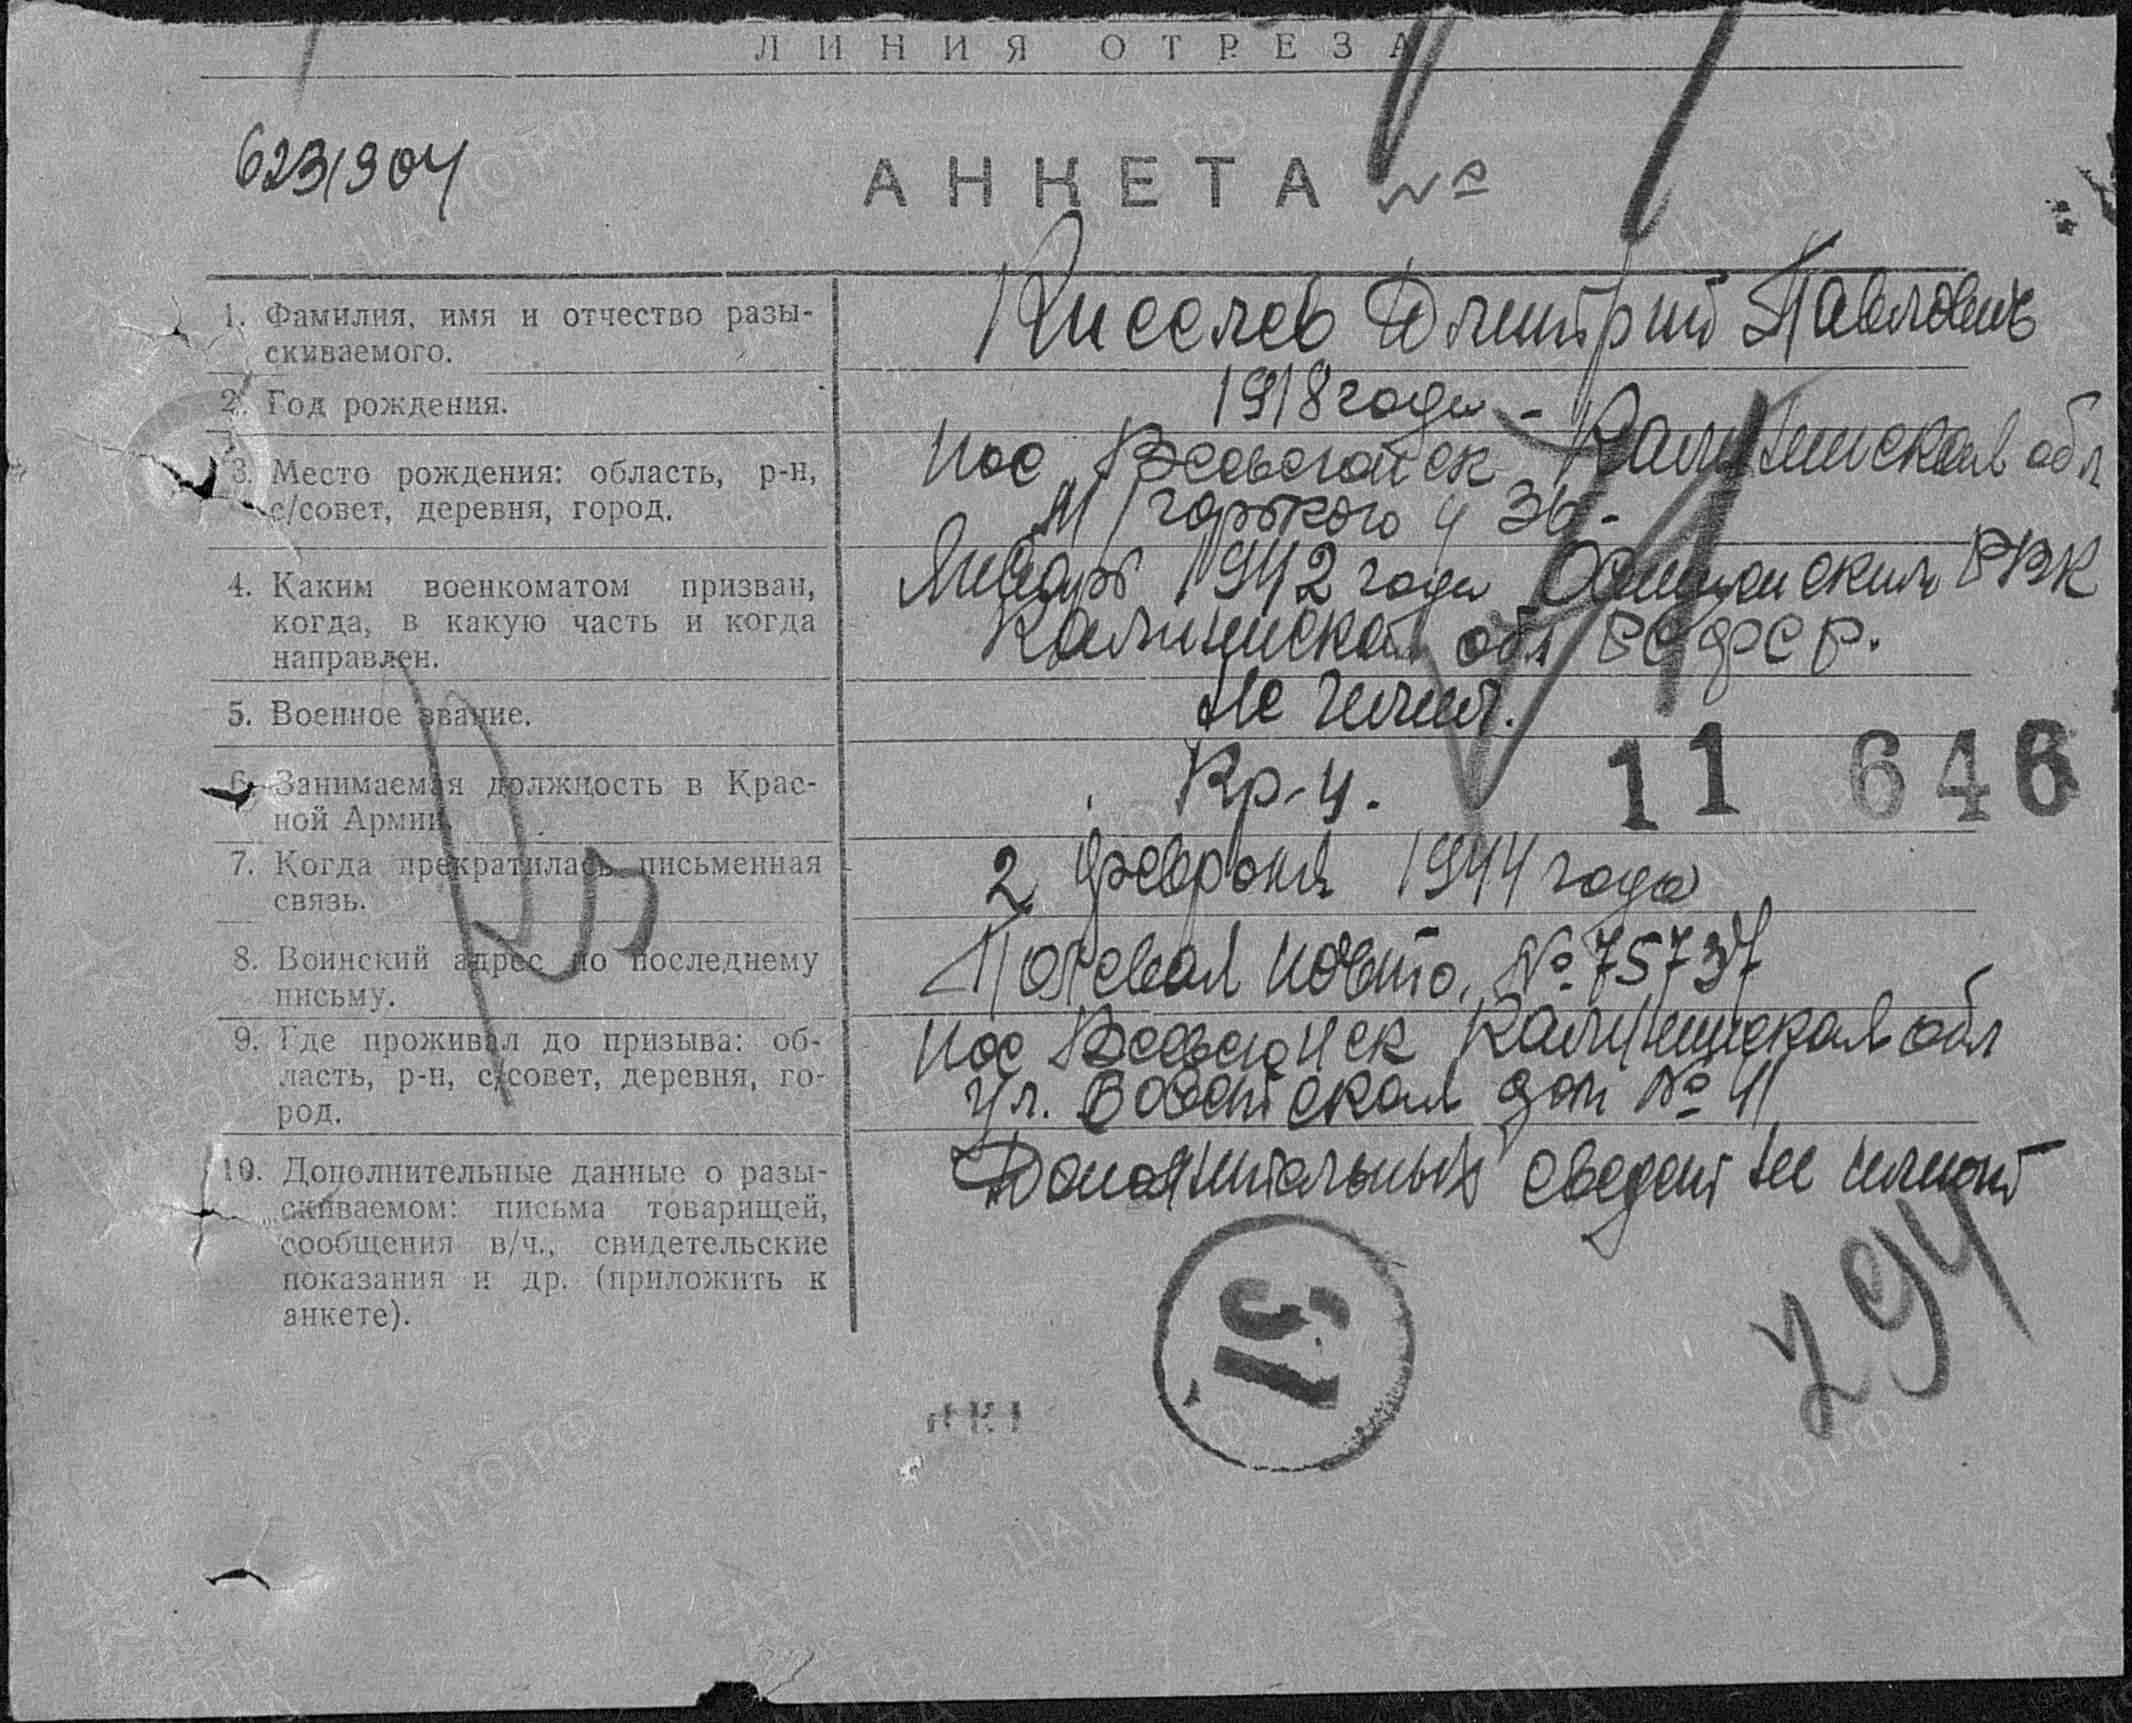 ЛИНИЯ ОТРЕЗА
623/904
АНКЕТА №
1. Фамилия, имя и отчество разы-
скиваемого.
Киселев Дмитрий Павлович
2. Год рождения.
1918 года -
3. Место рождения: область, р-н,
с/совет, деревня, город.
пос Весьегонск Калининская обл
М Горького 36.
4. Каким военкоматом призван,
когда, в какую часть и когда
направлен.
Январь 1942 года РВК
Калининской обл РСФСР.
5. Военное звание.
Не имел.
6. Занимаемая должность в Крас-
ной Армии.
Кр-ц.
11 646
7. Когда прекратилась письменная
связь.
2 февраля 1944 года
8. Воинский адрес по последнему
письму.
Полевая почта, № 75737
9. Где проживал до призыва: об-
ласть, р-н, с/совет, деревня, го-
род.
пос Весьегонск Калининская обл
ул. Советская дом № 41
10. Дополнительные данные о разы-
скиваемом: письма товарищей,
сообщения в/ч., свидетельские
показания и др. (приложить к
анкете).
Дополнительных сведений не имеют
51
294